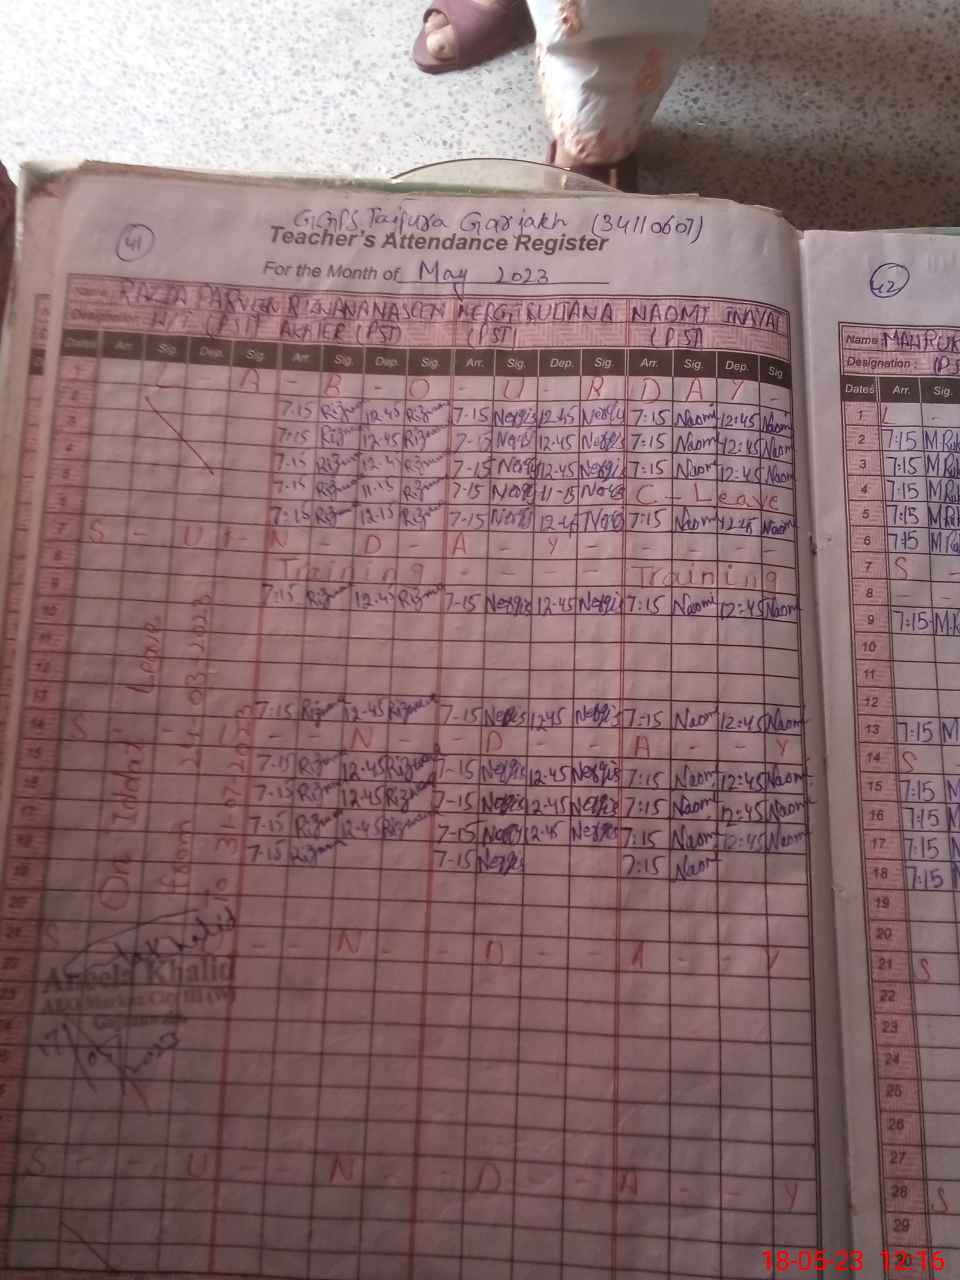 41
G.G.P.S, Tajpura Garjakh (34110607)
Teacher's Attendance Register
For the Month of May 2023
RAZIA PARVEEN RIZWANA NASEEN NERGIS SULTANA NAOMI INAYAT
Designation H/T (PST) AKHTER (PST) (PST) (PST)
Dates Arr. Sig. Dep. Sig. Arr. Sig. Dep. Sig. Arr. Sig. Dep. Sig. Arr. Sig. Dep. Sig.
1 L A - B - O - U - R D A Y -
2 7:15 Rizwana 12-45 Rizwana 7-15 Nergis 12-45 Nergis 7:15 Naomi 12:45 Naomi
3 7:15 Rizwana 12-45 Rizwana 7-15 Nergis 12-45 Nergis 7:15 Naomi 12:45 Naomi
4 7-15 Rizwana 12-45 Rizwana 7-15 Nergis 12-45 Nergis 7:15 Naomi 12:45 Naomi
5 7-15 Rizwana 11-15 Rizwana 7-15 Nergis 11-15 Nergis C - Leave
6 7:15 Rizwana 12-15 Rizwana 7-15 Nergis 7:15 Naomi Naomi
7 S - U - N - D - A - Y - - - - -
8 Training - - - - Training
9 7:15 Rizwana 12-45 Rizwana 7-15 Nergis 12-45 Nergis 7:15 Naomi 12:45 Naomi
10
11
12
13 7:15 Rizwana 12-45 Rizwana 7-15 Nergis 12-45 Nergis 7:15 Naomi 12:45 Naomi
14 S - - N - - D - - A - - Y
15 7-15 Rizwana 12-45 Rizwana 7-15 Nergis 12-45 Nergis 7:15 Naomi 12:45 Naomi
16 7-15 Rizwana 12-45 Rizwana 7-15 Nergis 12-45 Nergis 7:15 Naomi 12:45 Naomi
17 7-15 Rizwana 12-45 Rizwana 7-15 Nergis 12-45 Nergis 7:15 Naomi 12:45 Naomi
18 7-15 Rizwana 7-15 Nergis 7:15 Naomi
On Iddat Leave
from 21-03-2023
To 31-07-2023
- - N - - D - - A - - Y
Aneela Khalid
S - - U - - N - - D - - A - - Y
42
Name MAHRUKH
Designation : (PS
Dates Arr. Sig.
1 L -
2 7:15
3 7:15
4 7:15
5 7:15
6 7:15
7 S -
8 - -
9 7:15
10
11
12
13 7:15 M
14 S -
15 7:15 M
16 7:15 M
17 7:15
18 7:15
19
20
21 S
22
23
24
25
26
27
28 S
29
30
18-05-23 12:16